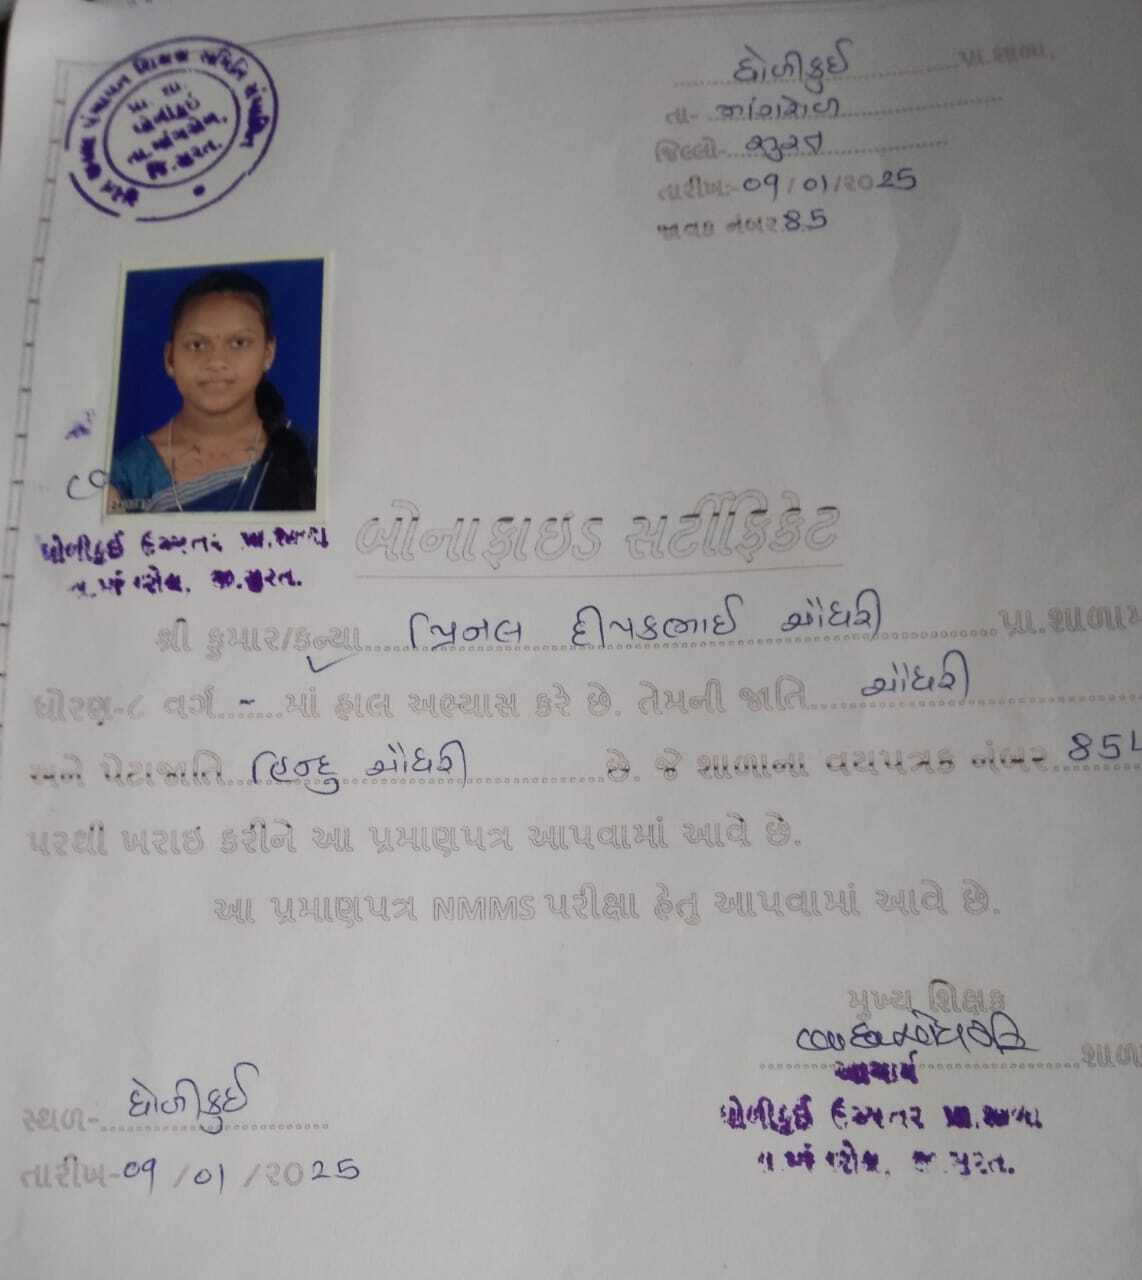 ધોળીકુઈ પ્રા.શાળા,
તા- માંગરોળ
જિલ્લો- સુરત
તારીખ:-09/01/૨૦25
જાવક નંબર.85
ધોળીકુઈ
જિ.સુરત.
ધોળીકુઈ ઉચ્ચતર પ્રા.શાળા
જી.સુરત.
બોનાફાઇડ સર્ટીફિકેટ
શ્રી કુમાર/કન્યા પ્રિનલ દીપકભાઈ ચૌધરી પ્રા.શાળામ
ધોરણ-૮ વર્ગ - માં હાલ અભ્યાસ કરે છે. તેમની જાતિ ચૌધરી
અને પેટાજાતિ હિન્દુ ચૌધરી છે. જે શાળાના વયપત્રક નંબર. 854
પરથી ખરાઇ કરીને આ પ્રમાણપત્ર આપવામાં આવે છે.
આ પ્રમાણપત્ર NMMS પરીક્ષા હેતુ આપવામાં આવે છે.
મુખ્ય શિક્ષક
શાળા
આચાર્ય
ધોળીકુઈ ઉચ્ચતર પ્રા.શાળા
જી.સુરત.
સ્થળ- ધોળીકુઈ
તારીખ-09/01/૨૦25